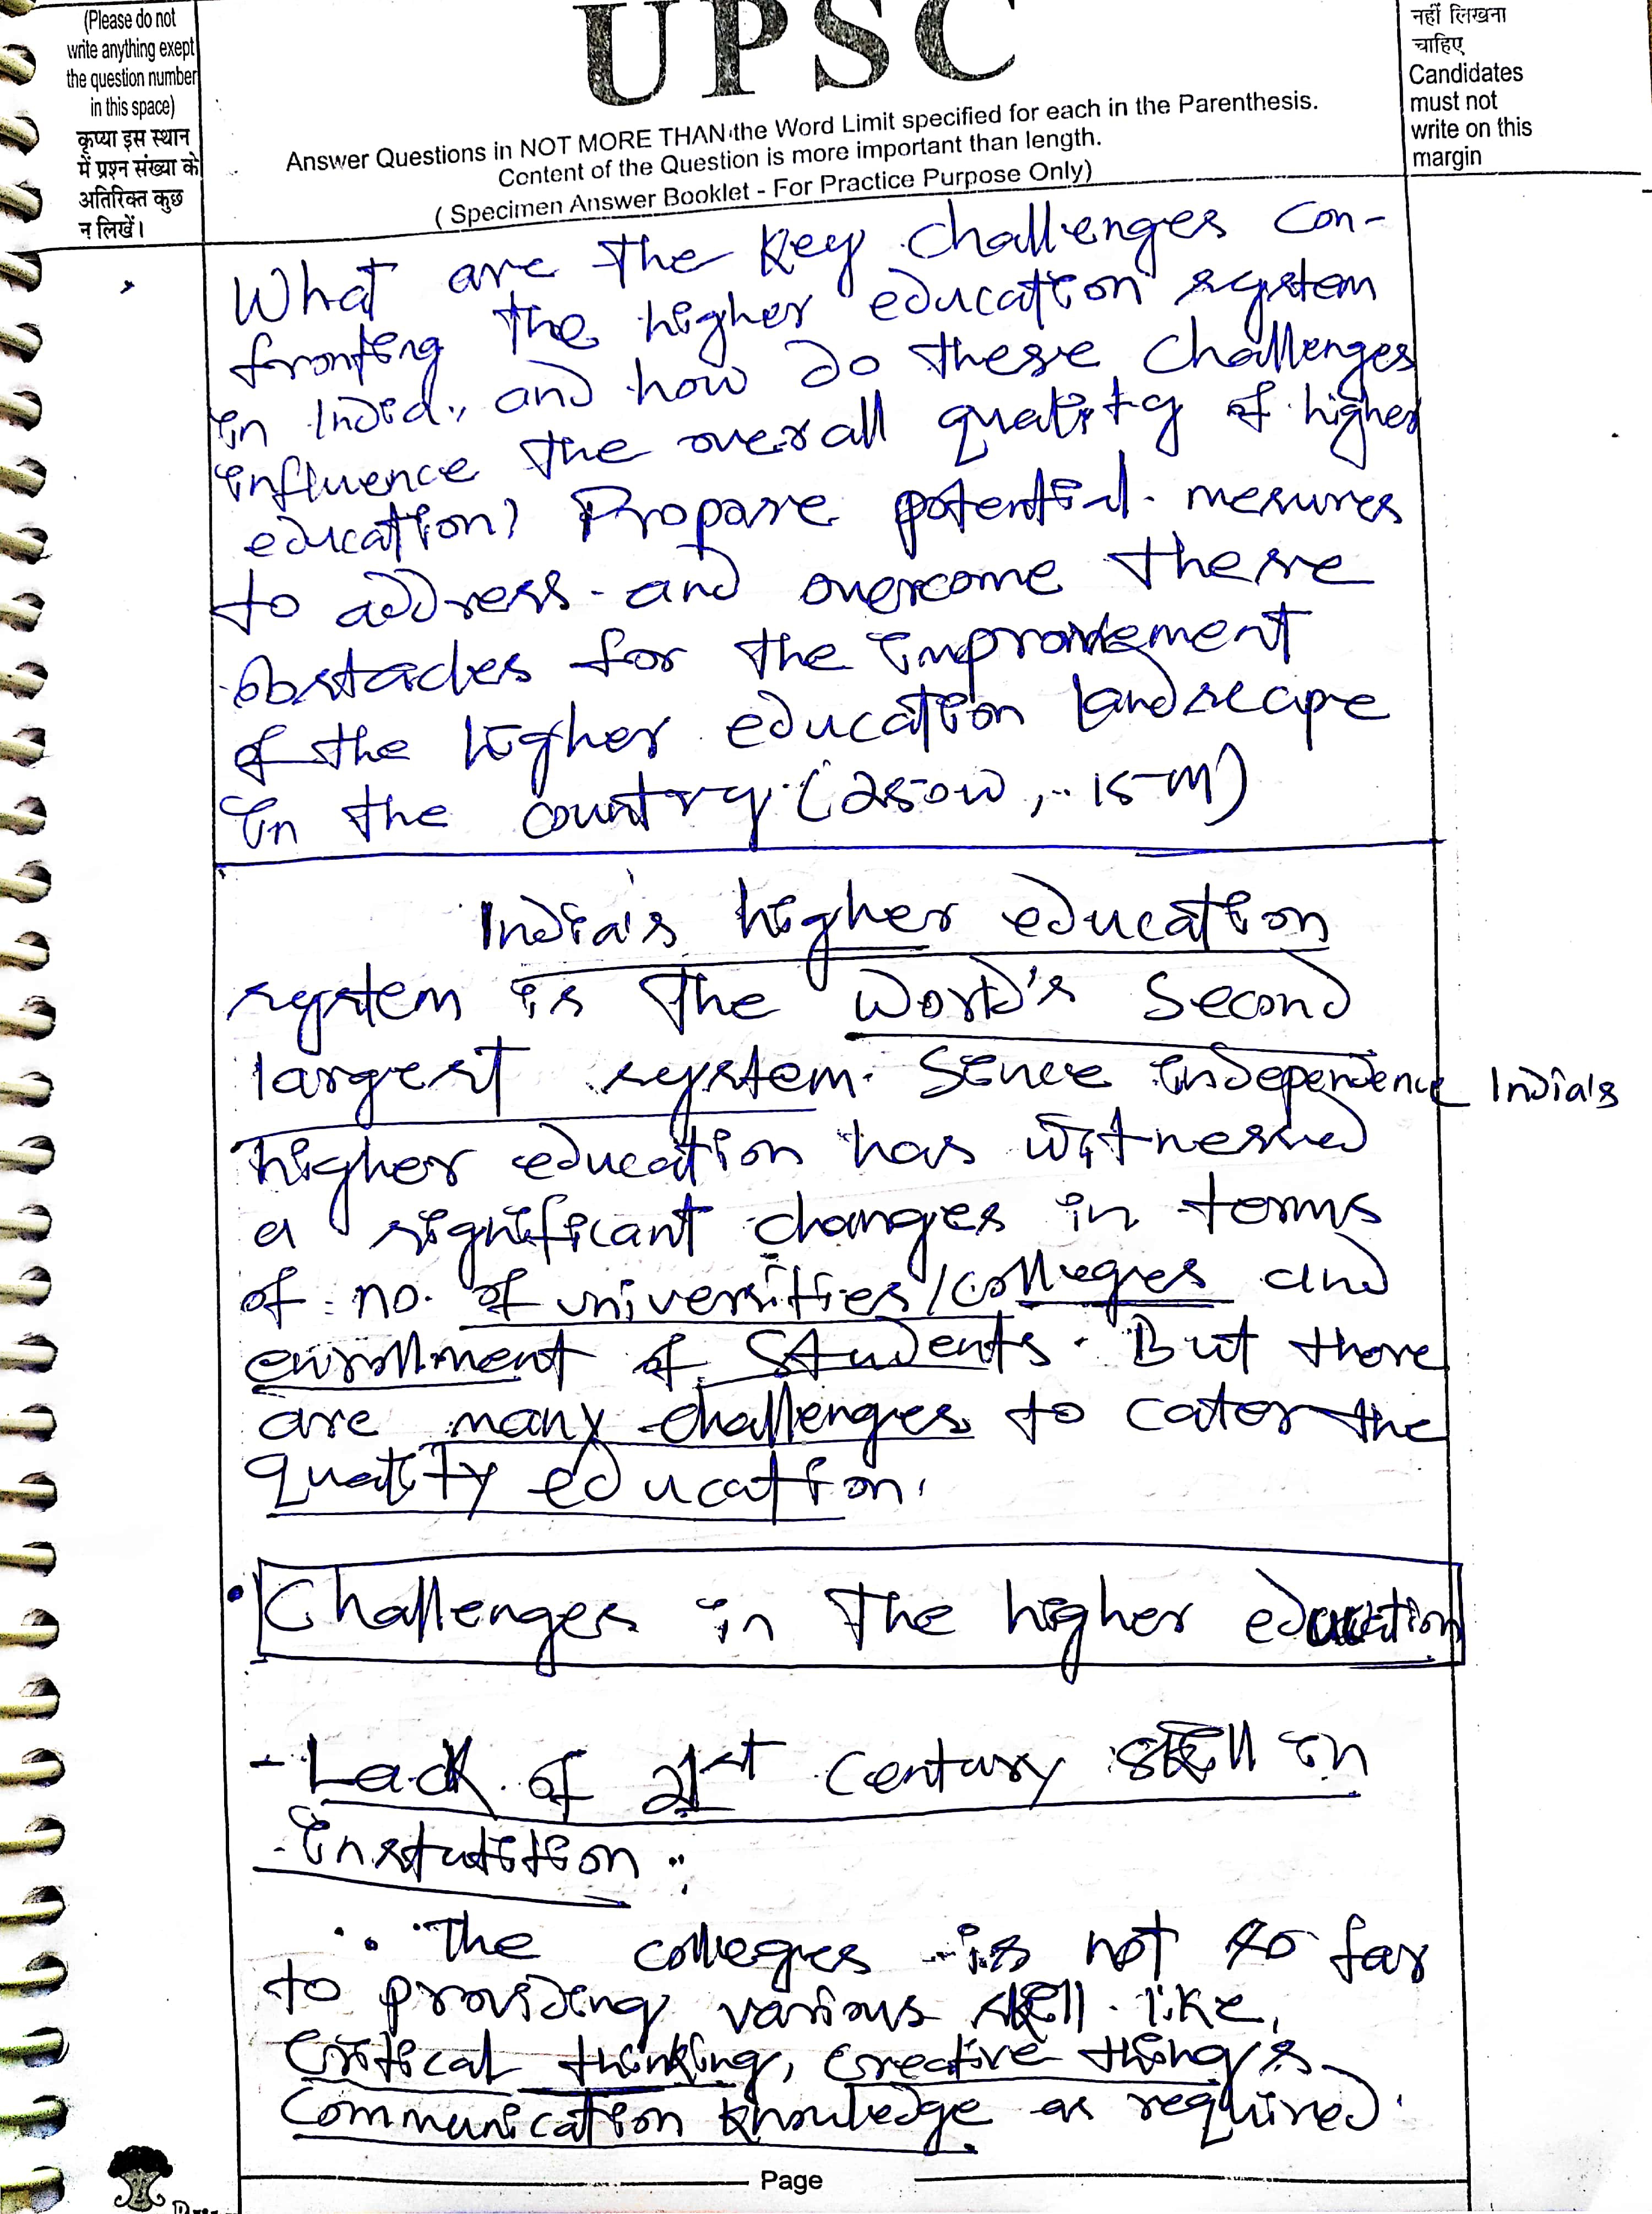 (Please do not
write anything exept
the question number
in this space)
कृप्या इस स्थान
में प्रश्न संख्या के
अतिरिक्त कुछ
न लिखें।
UPSC
Answer Questions in NOT MORE THAN the Word Limit specified for each in the Parenthesis.
Content of the Question is more important than length.
( Specimen Answer Booklet - For Practice Purpose Only)
नहीं लिखना
चाहिए
Candidates
must not
write on this
margin
What are the key challenges con-
fronting the higher education system
in India, and how do these challenges
influence the overall quality of higher
education? Propare potential mesures
to address and overcome these
obstacles for the improvement
of the higher education landscape
in the country (250w, 15-M)
India's higher education
system is the world's second
largest system. Since independence India's
higher education has witnessed
a significant changes in terms
of no. of universities/colleges and
enrollment of students. But there
are many challenges to cater the
quality education.
Challenges in the higher education
- Lack of 21st century skill in
institution :
The colleges is not so far
to providing various skill like,
critical thinking, creative things
communication knowledge as required.
Page